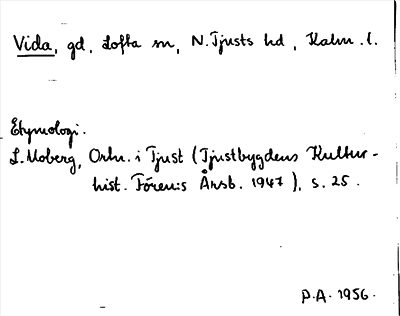 Vida, gd, Lofta sn, N. Tjusts hd, Kalm. l.
Etymologi.
L. Moberg, Ortn. i Tjust (Tjustbygdens Kultur-
hist. Fören:s Årsb. 1947), s. 25.
P.A. 1956.